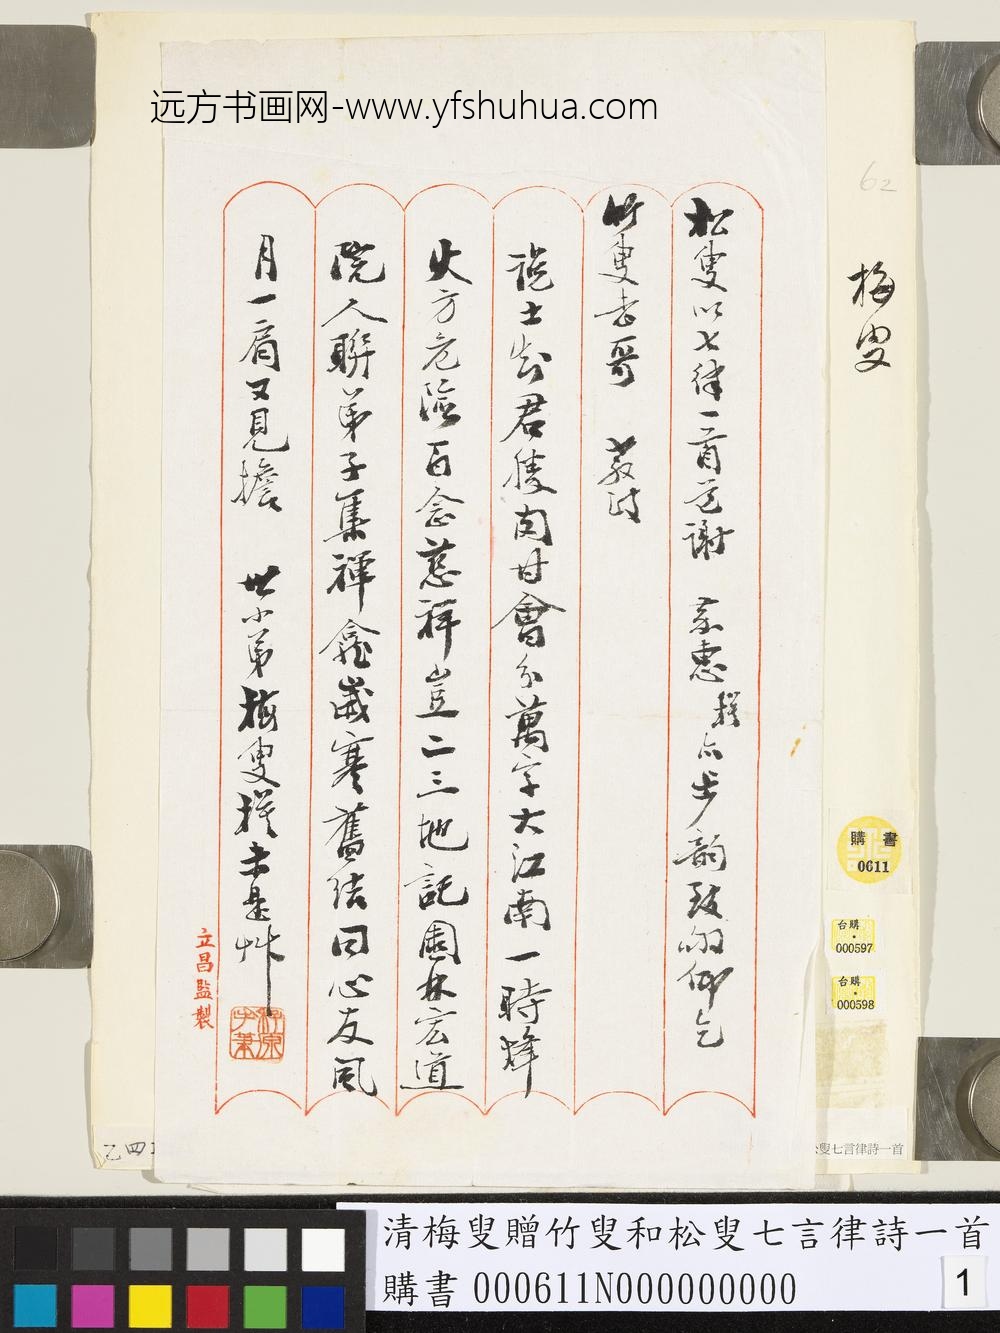 远方书画网-www.yfshuhua.com
62
梅叟
松叟以七律一首志謝 嘉惠 亦步韵致 仰乞
竹叟老哥 教政
說士 君勝肉甘會分萬字大江南一時烽
火方危險百念慈祥豈二三地託園林宏道
院人聯弟子集禪龕歲寒舊結同心友風
月一肩又見擔 世小弟梅叟 未是艸
立昌監製
購書
0611
台購
000597
台購
000598
乙四
叟七言律詩一首
清梅叟贈竹叟和松叟七言律詩一首
購書 000611N000000000
1